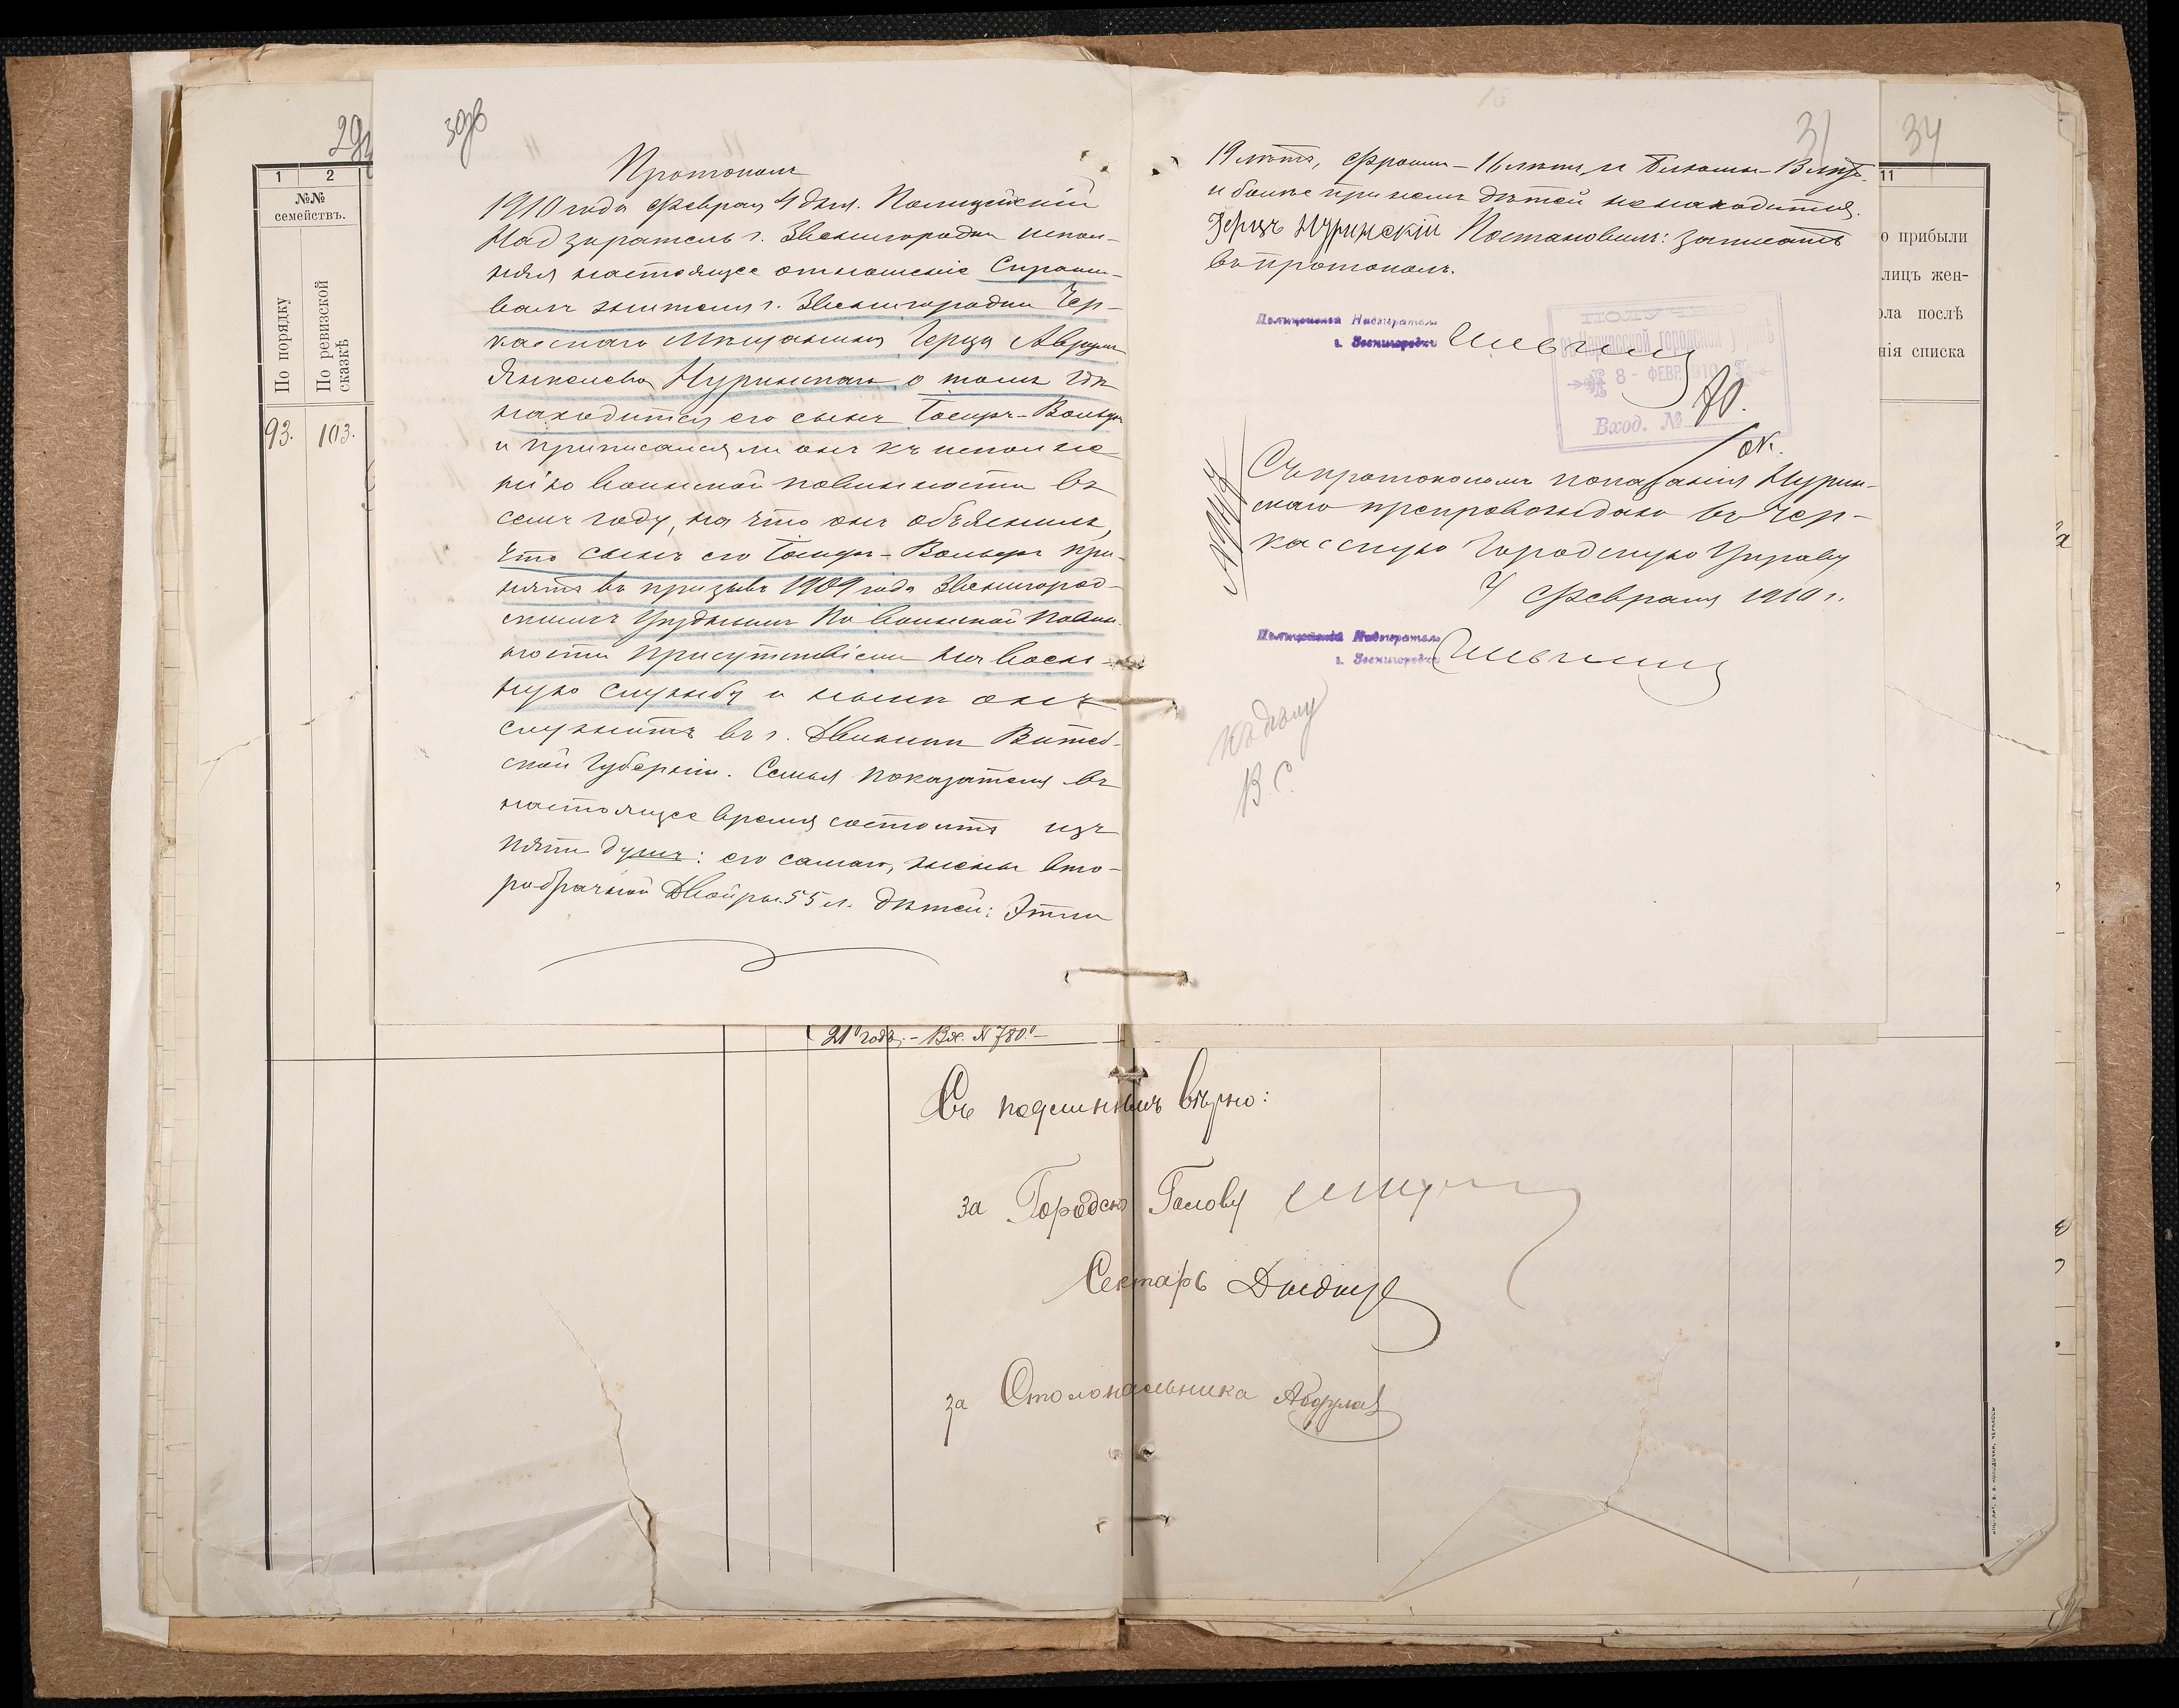 29
1 2
№№
семействъ.
По порядку
По ревизской
сказкѣ
93. 103.
30об
Протоколъ
1910 года Февраля 4 дня. Полицейскій
Надзиратель г. Звенигородки испол-
няя настоящее отношеніе Спраши-
валъ жителя г. Звенигородки Чер-
касскаго Мѣщанина Герца Аврума
Янкелева Нуринскаго о томъ гдѣ
находится его сынъ Вольфъ
и приписался ли онъ къ исполне
нію воинской повинности въ
семъ году, на что онъ объяснилъ,
что сынъ его Вольфъ при-
нятъ въ призывъ 1909 года Звенигород-
скимъ Уѣзднымъ По воинской повин-
ности Присутствіемъ на воен-
ную службу и нынѣ онъ
служитъ въ г. Двинскѣ Витеб-
ской Губерніи. Семья показателя въ
настоящее время состоитъ изъ
пяти душъ: его самаго, жены вто-
робрачной Двойры 55 л. дѣтей: Этли
31
19 лѣтъ, Фроим - 16 лѣтъ и - 13 лѣтъ
и болѣе при немъ дѣтей не находится.
Герцъ Нуринскій Постановилъ: записать
въ протоколъ.
Полицейскій Надзиратель
г. Звенигородки
ПОЛУЧ
въ Черкасской городской управѣ
8 - ФЕВР. 1910
Вход. №
Съ протоколомъ показанія Нурин-
скаго препровождаю въ Чер-
касскую Городскую Управу
4 Февраля 1910 г.
Полицейскій Надзиратель
г. Звенигородки
къ дѣлу
В. С.
34
11
о прибыли
лицъ жен-
ола послѣ
нія списка
21 годъ. - Вх. № 780. -
Съ подлиннымъ вѣрно:
за Городск Голову
Сектарь
за Столоначальника